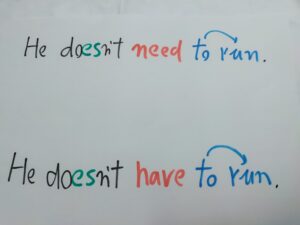 He doesn't need to run.
He doesn't have to run.